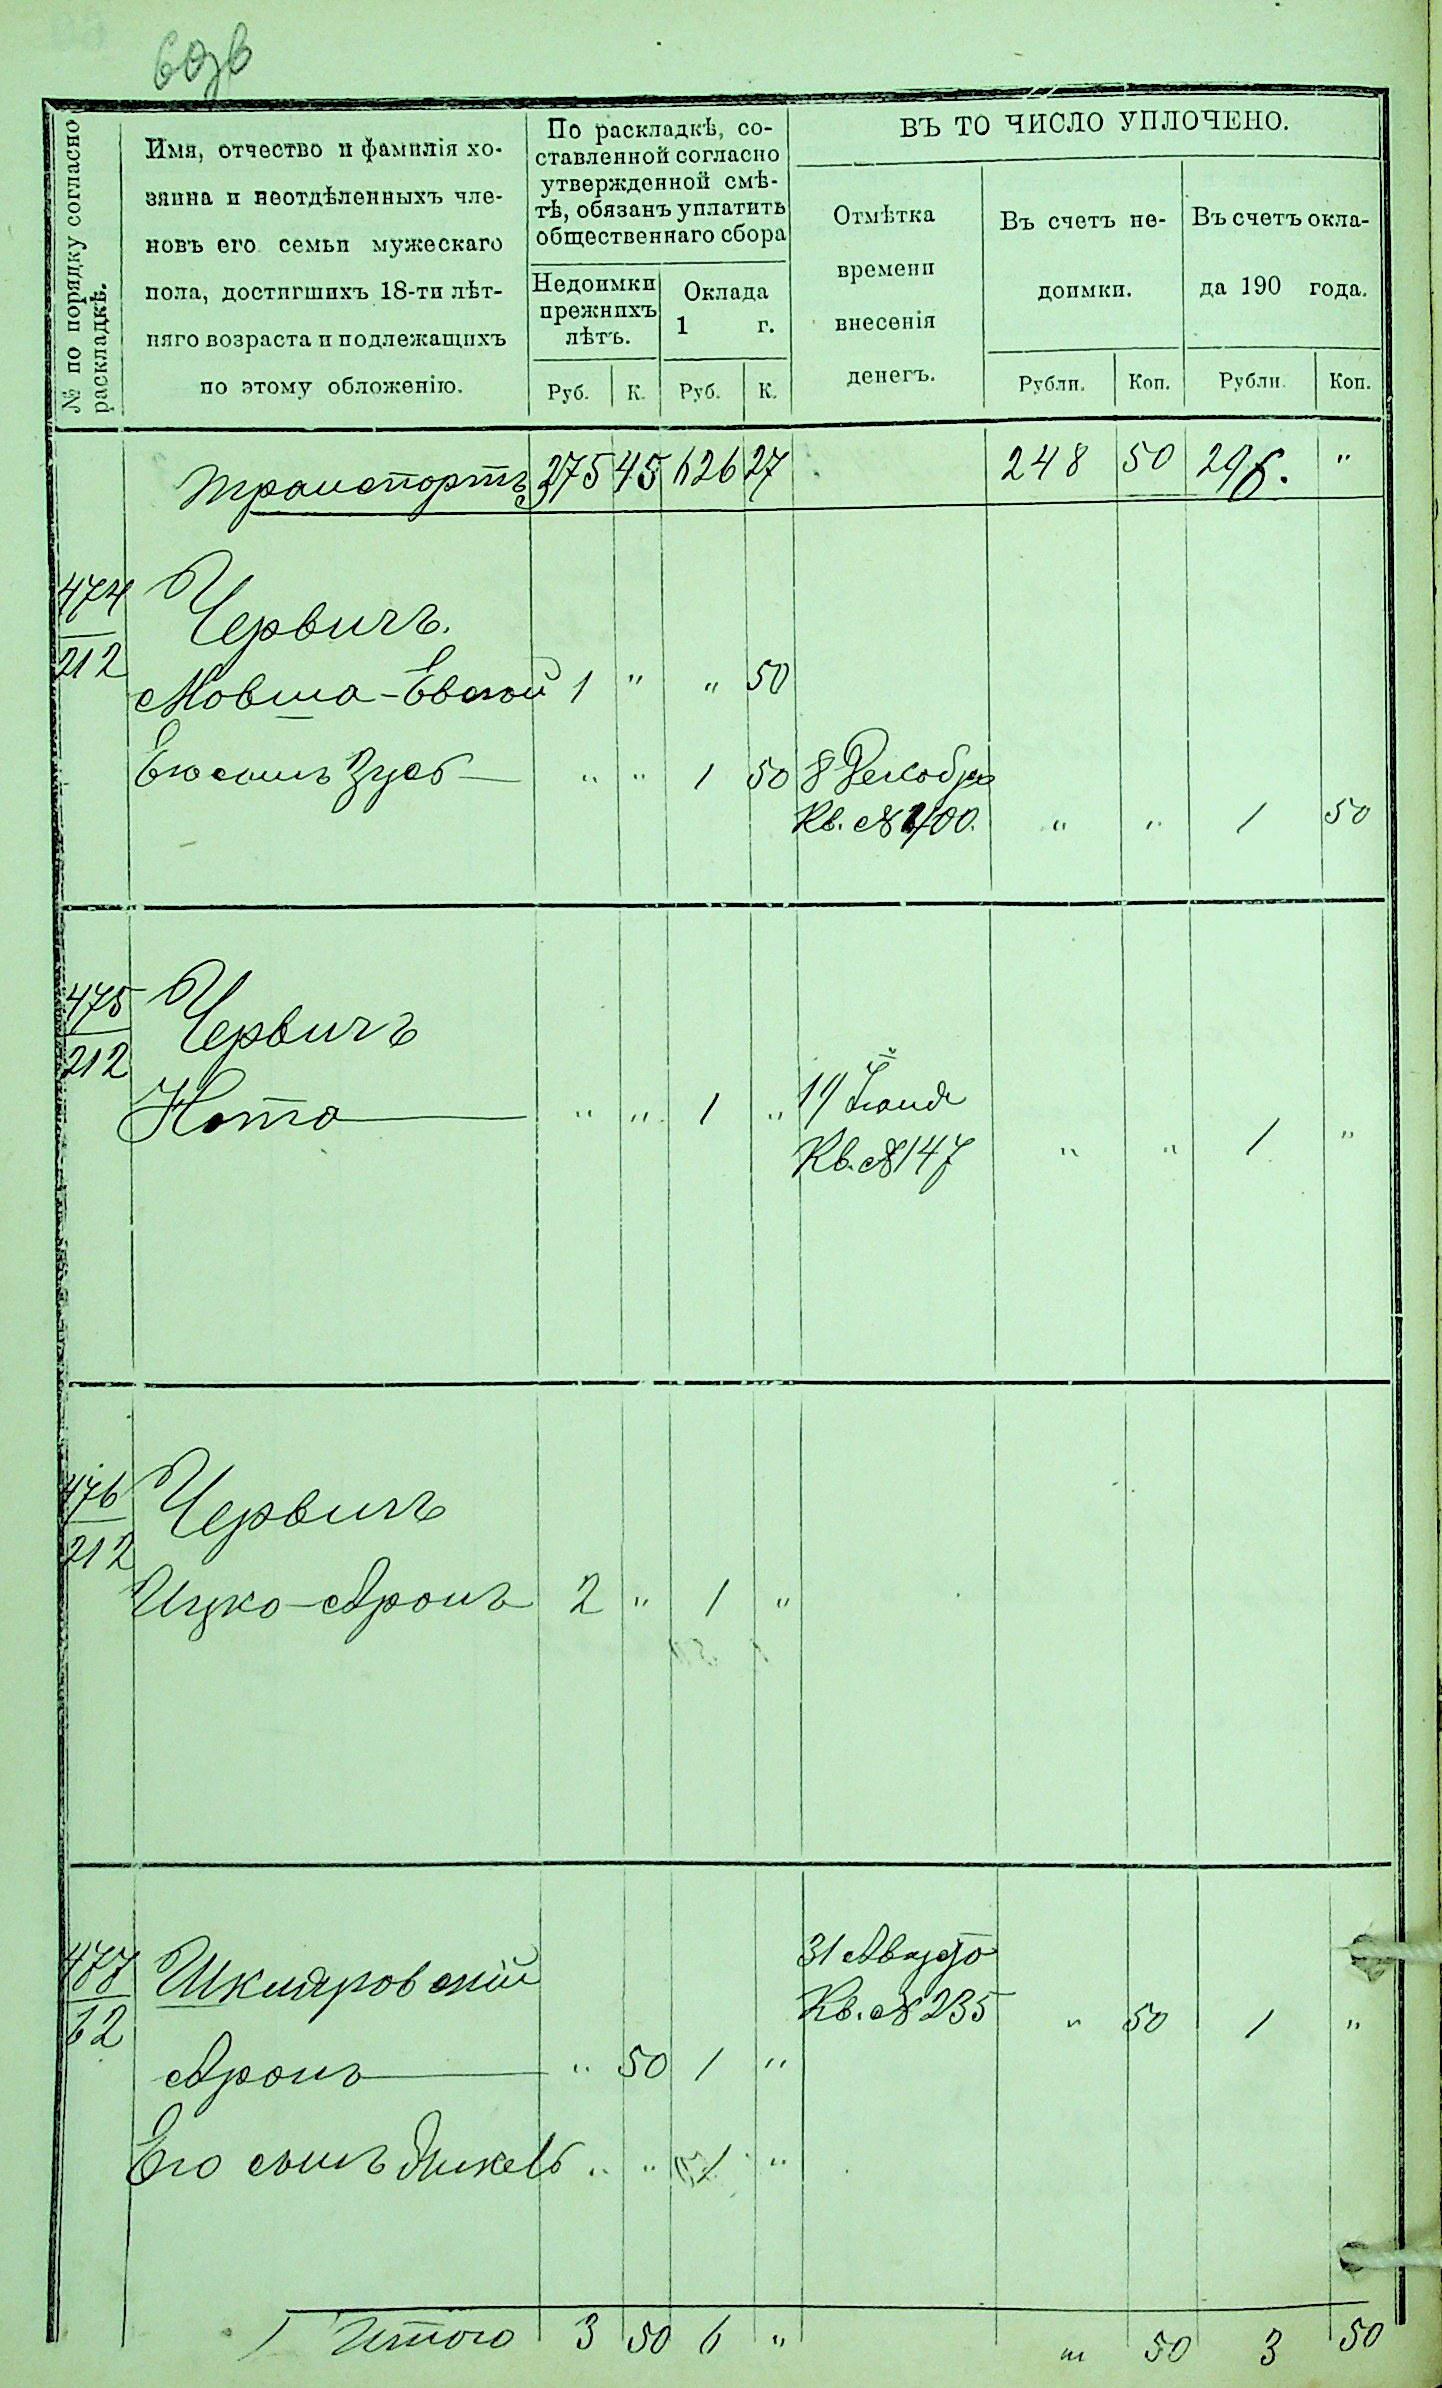 60зв
№ по порядку согласно раскладкѣ.
Имя, отчество и фамилія хо-
зяина и неотдѣленныхъ чле-
новъ его семьи мужескаго
пола, достигшихъ 18-ти лѣт-
няго возраста и подлежащихъ
по этому обложенію.
По раскладкѣ, со-
ставленной согласно
утвержденной смѣ-
тѣ, обязанъ уплатить
общественнаго сбора
Недоимки
прежнихъ
лѣтъ.
Оклада
1 г.
Руб. К. Руб. К.
ВЪ ТО ЧИСЛО УПЛОЧЕНО.
Отмѣтка
времени
внесенія
денегъ.
Въ счетъ не-
доимки.
Въ счетъ окла-
да 190 года.
Рубли. Коп. Рубли. Коп.
Транспортъ 275 45 626 27 248 50 296. "
474
212
Червичъ.
Мовша-Евсей 1 " " 50
Его сынъ Зусь " " 1 50 8 Декабря
Кв. № 400. " " 1 50
475
212
Червичъ
Нота " " 1 " 19 Іюня
Кв. № 147 " " 1 "
476
212
Червичъ
Ицко-Аронъ 2 " 1 "
477
62
Шкляровскій 31 Августа
Кв. № 235 " 50 1 "
Аронъ " 50 1 "
Его сынъ " " 1 "
Итого 3 50 6 " " 50 3 50